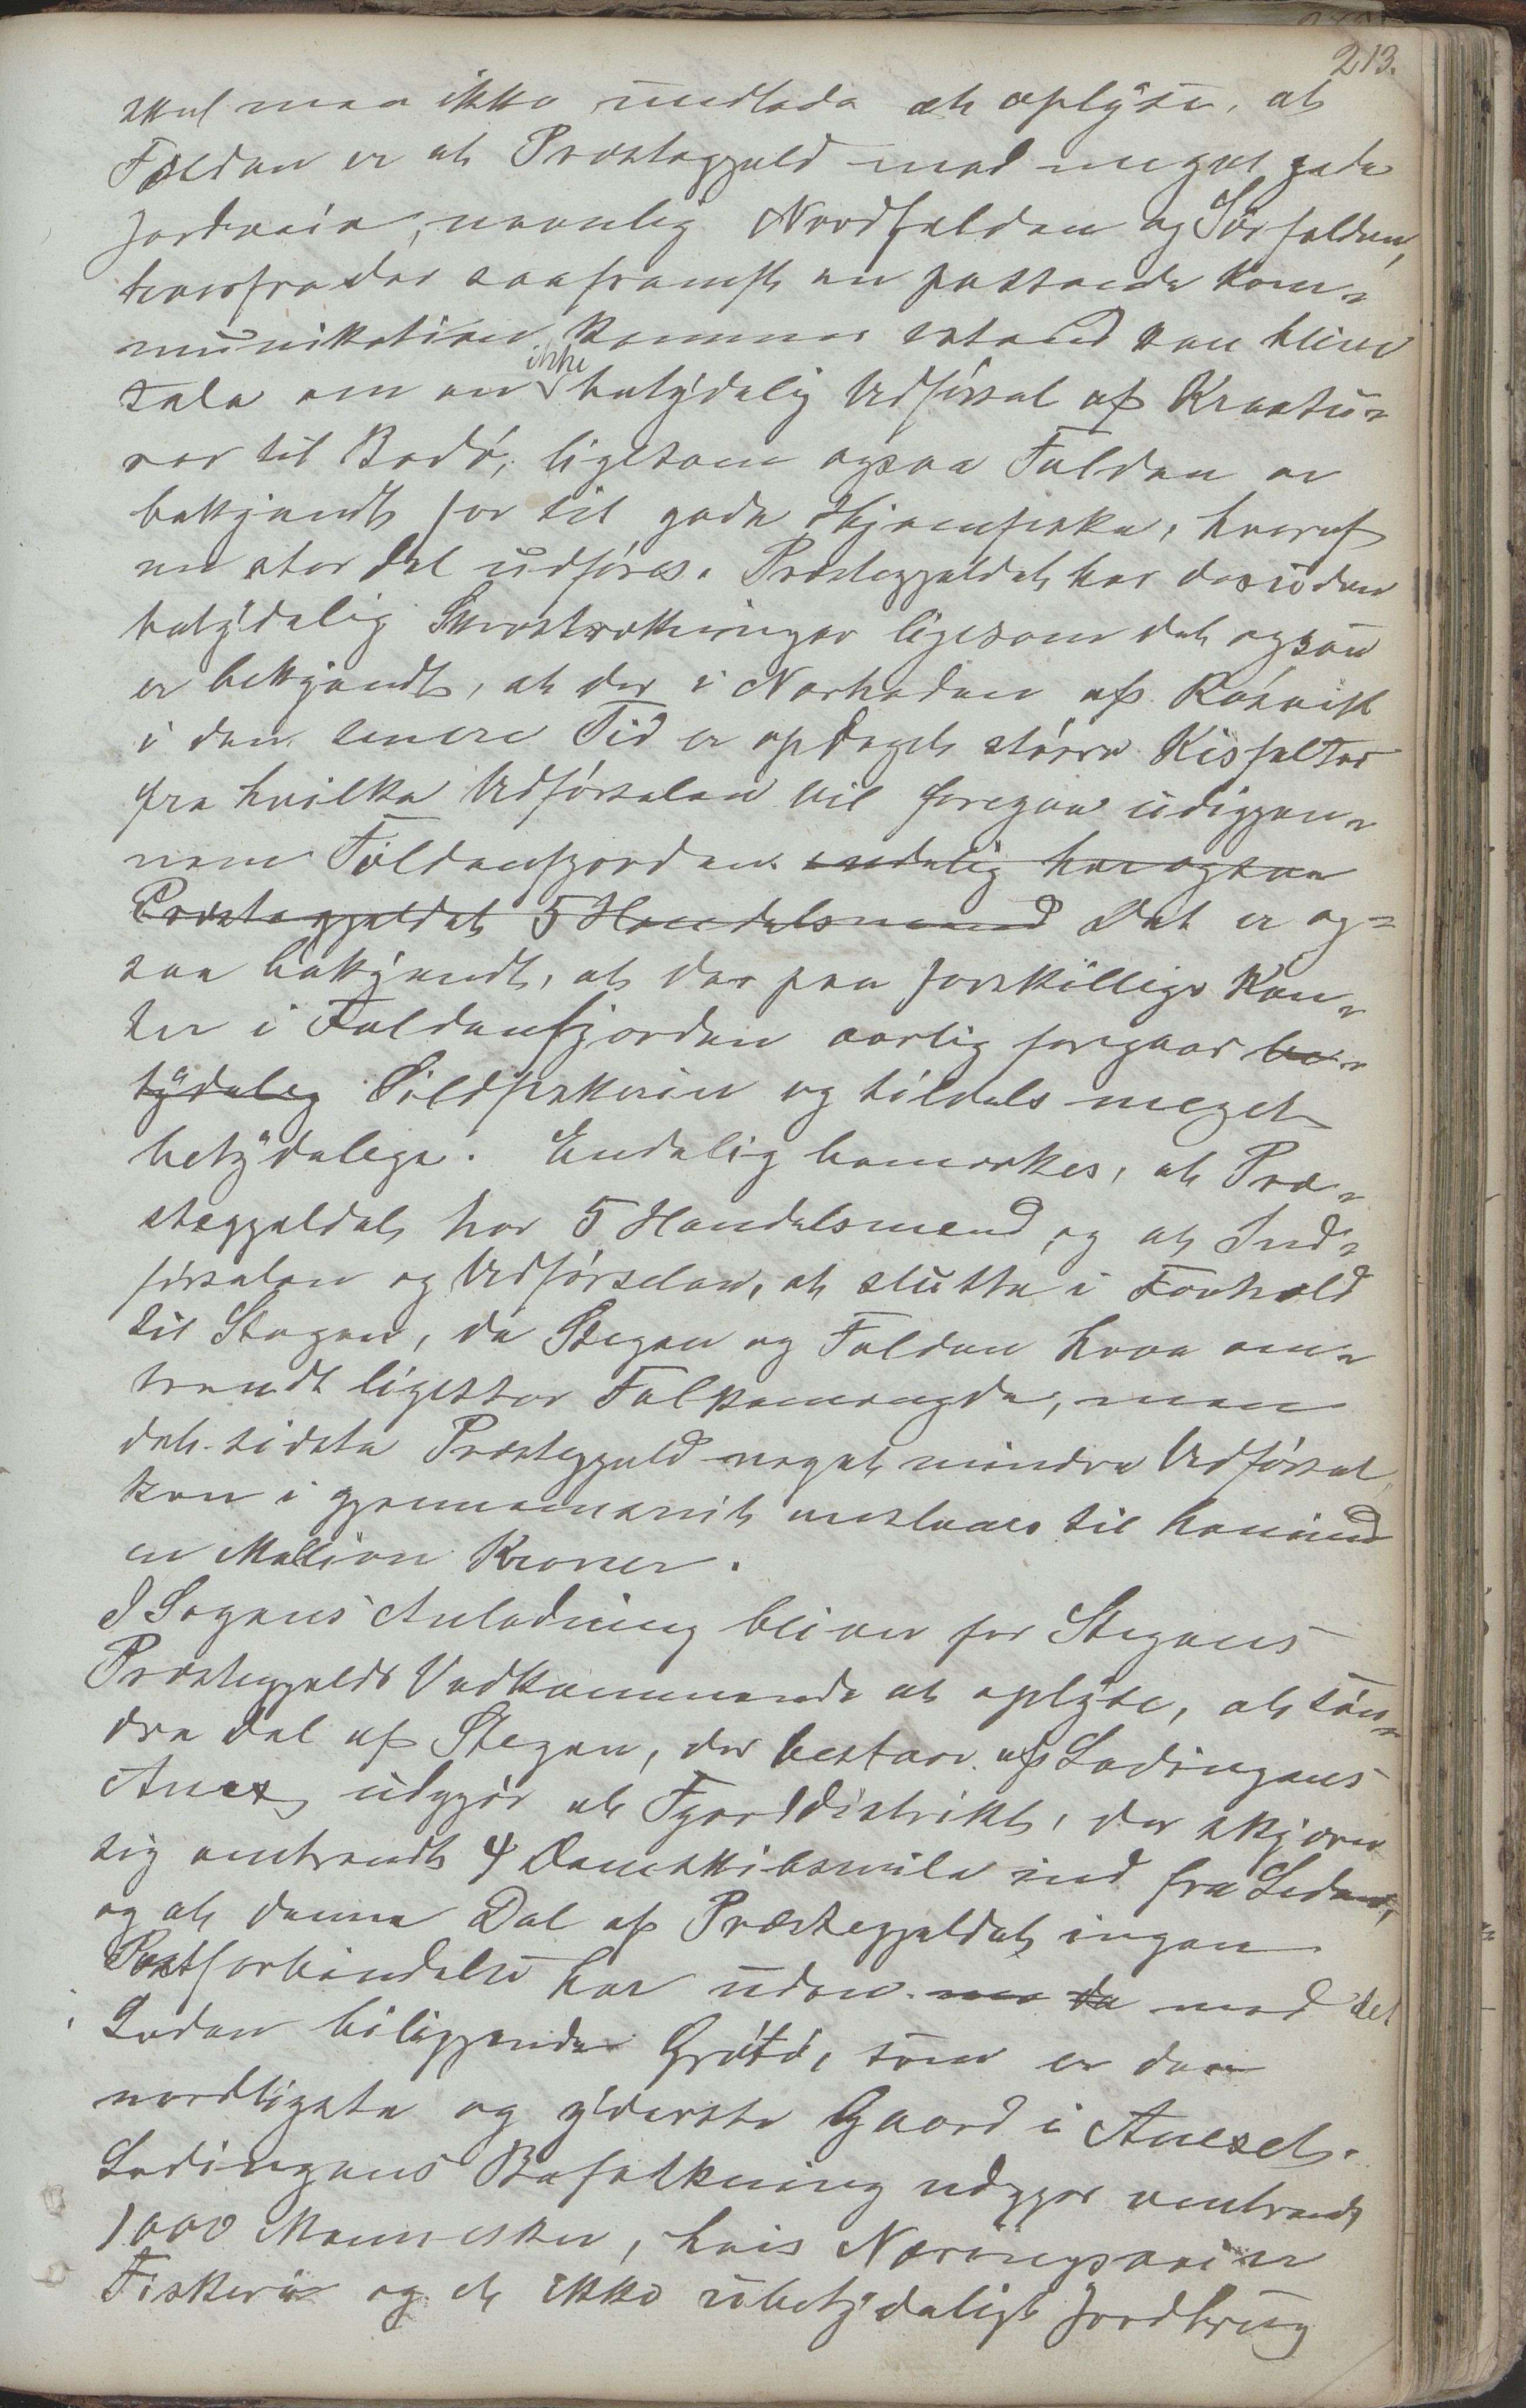 213.
skul man ikke undlade at oplyse, at
Folden er et Præstegjeld med meget gode
Jordveie, navnlig Nordfolden og Sörfolden,
hvorfra der saafremt en passende Kom-
munikation kommer istand kan blive
Tale om en ikke betydelig Udförsel af Kreatu-
rer til Bodö, ligesom ogsaa Folden er
bekjendt for sit gode Hjemfiske, hvoraf
en stor Del udföres. Præstegjeldet har desuden
betydelig Skovstrækninger ligesom det ogsaa
er bekjendt, at der i Nærheden af Rösvik
i den senere Tid er opdaget störra Kisfelter
fra hvilke Udförselen vil foregaa udigjen-
nem Foldenfjorden. endelig har ogsaa
Præstegjeldet 5 Handelsmænd Det er og-
saa bekjendt, at der paa forskillige Kan-
ter i Foldenfjorden aarlig foregaar be-
tydelig Sildfiskerier og tildels meget
betydelige. Endelig bemærkes, at Præ-
stegjeldet har 5 Handelsmænd, og at Ind-
förselen og Udförselen, at slutte i Forhold
til Stegen, da Stegen og Folden have om-
trendt ligestor Folkemængde, men
det sidste Præstegjeld noget mindre Udförsel,
kan i gjennemsnit anslaaes til henimod
en Million Kroner.
I Sagens Anledning bliver for Stegens
Præstegjelds Vedkommende at oplyse, at sön-
dre Del af Stegen, der bestaar af Ledingens
Anex, udgjör et Fjorddistrikt, der skjærer
sig omtrendt 4 Damskibsmile ind fra Leden,
og at denne Del af Præstegjeldet ingen
Postforbindelse har uden men da med det
i Leden biliggende Grötö, som er den
nordligste og yderste Gaard i Anexet.
Ledingens Befolkning udgjør omtrendt
1000 Mennesker, hvis Næringsvei er
Fiskeri og et ikke ubetydeligt Jordbrug